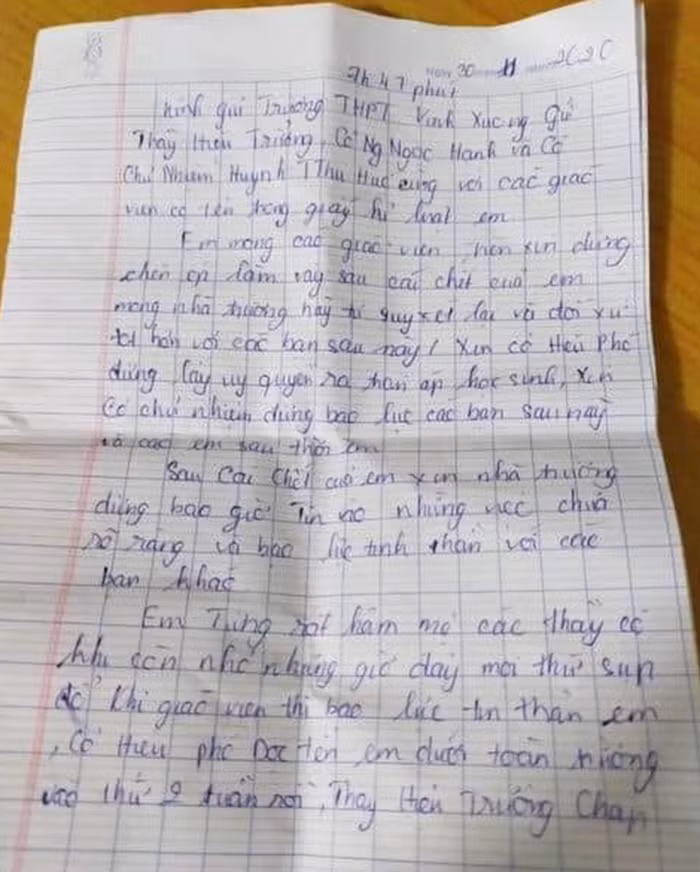 30 11 2020
7h 47 phút
kính gửi Trường THPT Vĩnh Xương Gửi
Thầy Hiệu Trưởng, Cô Ng Ngọc Hạnh và Cô
Chủ Nhiệm Huỳnh T Thu Huệ cùng với các giáo
viên có tên trong giấy kỉ luật em
Em mong các giáo viên, hơn xin đừng
chèn ép lắm vậy sau cái chết của em
mong nhà trường hãy quy xét lại và đối xử
tốt hơn với các bạn sau này! Xin cô Hiệu Phó
đừng lấy uy quyền ra hạn áp học sinh, xin
cô chủ nhiệm đừng bạo lực các bạn sau này
và các em sau thời em
Sau cái chết của em xin nhà trường
đừng bao giờ Tin vào những việc chưa
rõ ràng và bạo lực tinh thần với các
bạn khác
Em Từng rất hâm mộ các thầy cô
khi còn nhỏ nhưng giờ đây mọi thứ sụp
đổ Khi giáo viên thì bạo lực tin thần em
, Cô Hiệu phó Đọc tên em dưới toàn trường
vào thứ 2 tuần rồi, Thầy Hiệu Trưởng Chấp